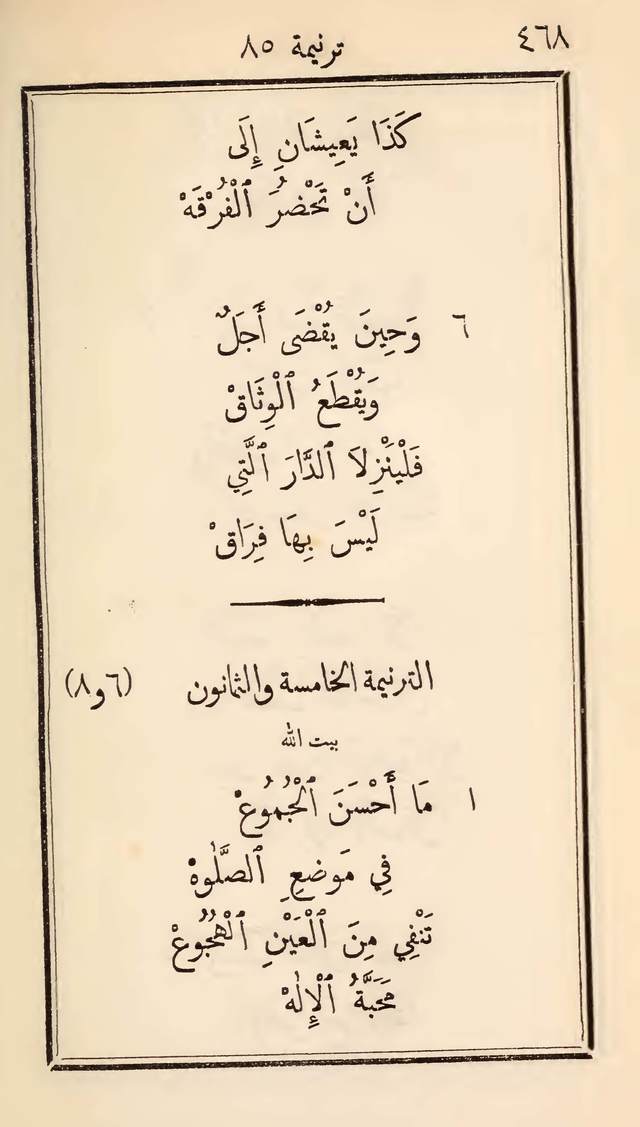 ٤٦٨
ترنيمة ٨٥
كَذَا يَعِيشَانِ إِلَى
أَنْ تَحْضرُ ٱلْفُرْقَهْ
٦ وَحِينَ يُقْضَى أَجَلٌ
وَيُقْطَعُ ٱلْوِثَاقْ
فَلْيَنْزِلاَ ٱلدَّارَ ٱلَّتِي
لَيْسَ بِهَا فِرَاقْ
الترنيمة الخامسة والثمانون (٦ و٨)
بيت الله
١ مَا أَحْسَنَ ٱلْجُمُوعْ
فِي مَوضعِ ٱلصَّلٰوهْ
تَنْفِي مِنَ ٱلْعَيْنِ ٱلْهُجُوعْ
مَحَبَّةُ ٱلْإِلٰهْ